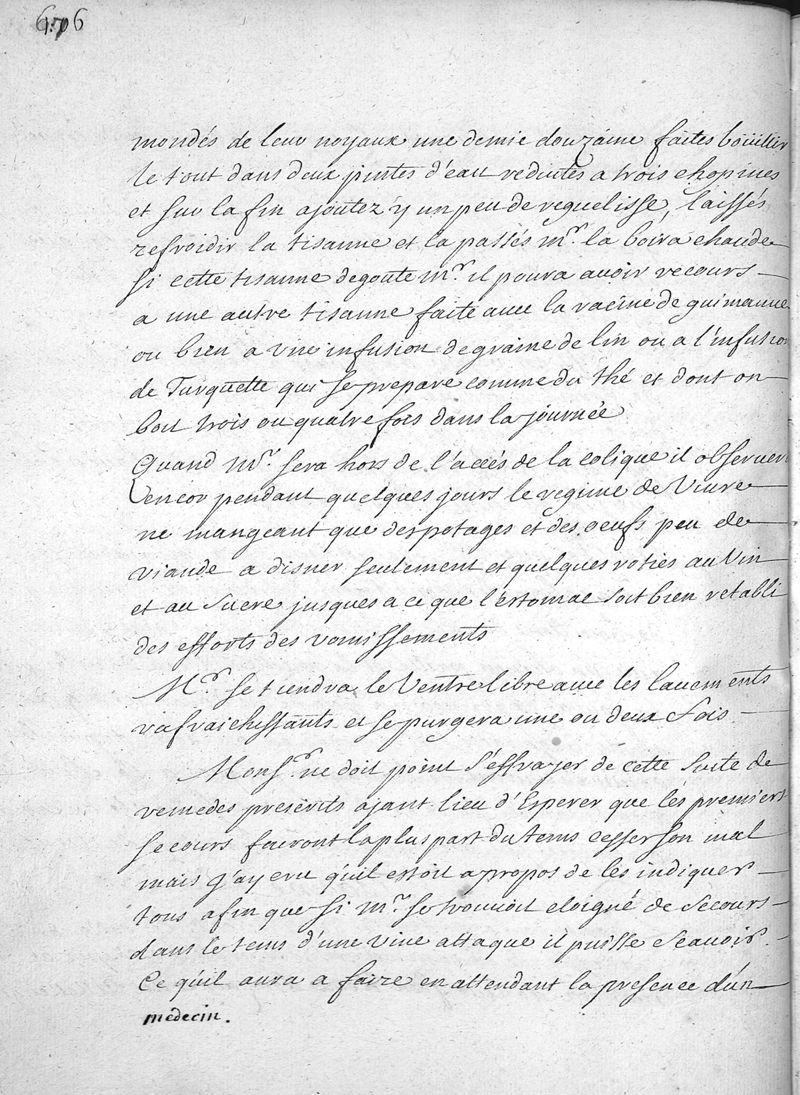 676
mondés de leur noyaux une demie douzáine faites boüillir
le tout dans deux pintes d'eau reduites a trois chopines
et sur la fin ajoutez'y un peu de reguelisse, laissés
refroidir la tisanne et la passés Mr. la boira chaude
si cette tisanne degoute Mr. il poura avoir recours
a une autre tisanne faite avec la racine de guimauve
ou bien a vne infusion de graine de lin ou a l'infusion
de Turquette qui se prepare comme du thé et dont on
boit trois ou quatre fois dans la journée
Quand Mr. sera hors de l'accés de la colique il observera
encor pendant quelques jours le regime de Vivre
ne mangeant que des potages et des oeufs peu de
viande a disner seulement et quelques roties au Vin
et au sucre jusques a ce que l'estomac soit bien retabli
des efforts des vomissements
Mr. se tiendra le Ventre libre avec les lavements
rafraichissants et se purgera une ou deux fois
Monsr. ne doit point s'effrayer de cette suite de
remedes prescrits ajant lieu d'Esperer que les premiers
secours fairont la plus part du tems cesser son mal
mais j'ay cru qu'il estoit a propos de les indiquer
tous afin que si Mr. se trouvoit eloigné de secours
dans le tems d'une vive attaque il puisse sçavoir
Ce qu'il aura a faire en attendant la presence d'un
medecin.